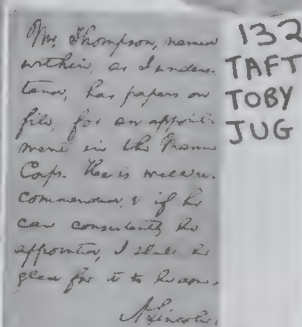 Mr. Thompson, named
within, as I unders-
tand, has papers on
file, for an appoint-
ment in the Marine
Corps. He is well re-
commended, & if he
can consistently be
appointed, I shall be
glad for it to be done.
A. Lincoln.
132
TAFT
TOBY
JUG